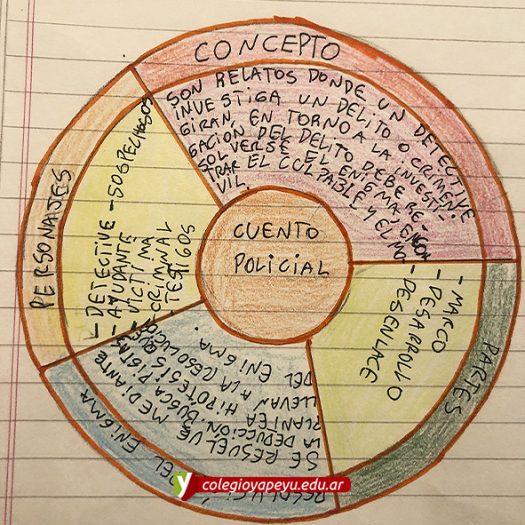 CONCEPTO
SON RELATOS DONDE UN DETECTIVE
INVESTIGA UN DELITO O CRIMEN.
GIRAN, EN TORNO A LA INVESTI-
GACIÓN DEL DELITO DEBE RE-
SOLVERSE EL ENIGMA, ENCON
TRAR EL CULPABLE Y EL MÓ-
VIL.
PERSONAJES
- DETECTIVE - SOSPECHOSOS
- AYUDANTE
- VÍCTIMA
- CRIMINAL
- TESTIGOS
CUENTO
POLICIAL
PARTES
- MARCO
- DESARROLLO
- DESENLACE
DEL ENIGMA
SE RESUELVE MEDIANTE
LA DEDUCCIÓN. BUSCA PISTAS,
PLANTEA HIPÓTESIS QUE
LLEVAN A LA RESOLUCIÓN
DEL ENIGMA.
colegioyapeyu.edu.ar